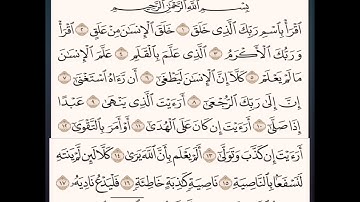 بِسْمِ اللَّهِ الرَّحْمَٰنِ الرَّحِيمِ
ٱقْرَأْ بِٱسْمِ رَبِّكَ ٱلَّذِى خَلَقَ ١ خَلَقَ ٱلْإِنسَٰنَ مِنْ عَلَقٍ ٢ ٱقْرَأْ
وَرَبُّكَ ٱلْأَكْرَمُ ٣ ٱلَّذِى عَلَّمَ بِٱلْقَلَمِ ٤ عَلَّمَ ٱلْإِنسَٰنَ
مَا لَمْ يَعْلَمْ ٥ كَلَّآ إِنَّ ٱلْإِنسَٰنَ لَيَطْغَىٰٓ ٦ أَن رَّءَاهُ ٱسْتَغْنَىٰٓ ٧
إِنَّ إِلَىٰ رَبِّكَ ٱلرُّجْعَىٰٓ ٨ أَرَءَيْتَ ٱلَّذِى يَنْهَىٰ ٩ عَبْدًا
إِذَا صَلَّىٰٓ ١٠ أَرَءَيْتَ إِن كَانَ عَلَى ٱلْهُدَىٰٓ ١١ أَوْ أَمَرَ بِٱلتَّقْوَىٰٓ ١٢
أَرَءَيْتَ إِن كَذَّبَ وَتَوَلَّىٰٓ ١٣ أَلَمْ يَعْلَم بِأَنَّ ٱللَّهَ يَرَىٰ ١٤ كَلَّا لَئِن لَّمْ يَنتَهِ
لَنَسْفَعًۢا بِٱلنَّاصِيَةِ ١٥ نَاصِيَةٍ كَٰذِبَةٍ خَاطِئَةٍ ١٦ فَلْيَدْعُ نَادِيَهُۥ ١٧